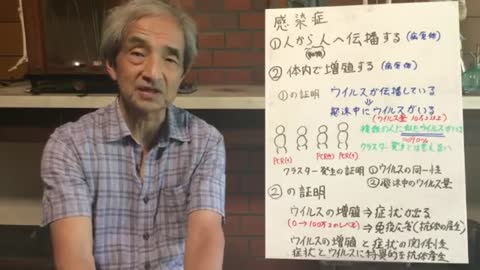 感染症
①人から人へ伝播する(病原体)
②体内で増殖する(病原体)
①の証明 ウイルスが伝播している
⇓
飛沫中にウイルスがいる
(ウイルス量
複数の人に
ウイルスがいる
PCR(+) PCR(+) PCR(+)
クラスター発生の証明 ①ウイルスの同一性
②飛沫中のウイルス量
②の証明
ウイルスの増殖⇒症状が出る
(0→100万コのレベル)⇒免疫応答(抗体の産生)
ウイルスの増殖と症状の関係性
症状とウイルスに特異的な抗体産生